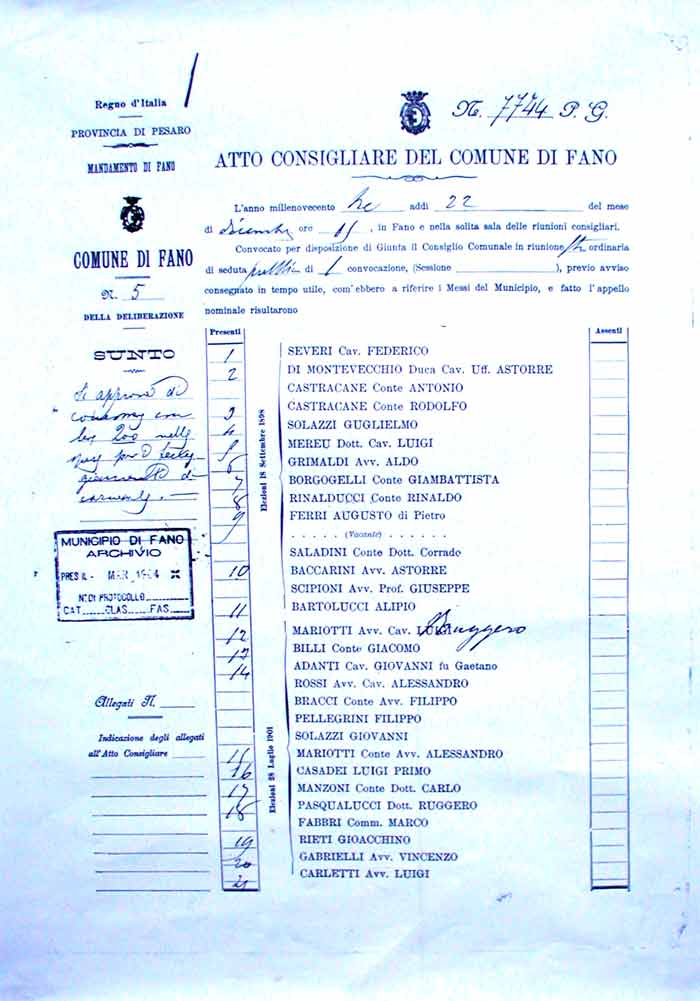 Regno d'Italia
PROVINCIA DI PESARO
MANDAMENTO DI FANO
COMUNE DI FANO
N. 5
DELLA DELIBERAZIONE
SUNTO
Si approva di
200
MUNICIPIO DI FANO
ARCHIVIO
PRES IL - MAR 1984
N. DI PROTOCOLLO
CAT. CLAS. FAS.
Allegati N.
Indicazione degli allegati
all'Atto Consigliare
N. 7744 P. G.
ATTO CONSIGLIARE DEL COMUNE DI FANO
L'anno millenovecento tre addì 22 del mese
di Dicembre ore 15, in Fano e nella solita sala delle riunioni consigliari.
Convocato per disposizione di Giunta il Consiglio Comunale in riunione ordinaria
di seduta pubblica di 1 convocazione, (Sessione ), previo avviso
consegnato in tempo utile, com'ebbero a riferire i Messi del Municipio, e fatto l'appello
nominale risultarono
Presenti
Assenti
Elezioni 18 Settembre 1898
1 SEVERI Cav. FEDERICO
2 DI MONTEVECCHIO Duca Cav. Uff. ASTORRE
CASTRACANE Conte ANTONIO
3 CASTRACANE Conte RODOLFO
4 SOLAZZI GUGLIELMO
5 MEREU Dott. Cav. LUIGI
6 GRIMALDI Avv. ALDO
7 BORGOGELLI Conte GIAMBATTISTA
8 RINALDUCCI Conte RINALDO
9 FERRI AUGUSTO di Pietro
. . . . . (Vacante) . . . . . .
SALADINI Conte Dott. Corrado
10 BACCARINI Avv. ASTORRE
SCIPIONI Avv. Prof. GIUSEPPE
11 BARTOLUCCI ALIPIO
Elezioni 28 Luglio 1901
12 MARIOTTI Avv. Cav. LUIGI Ruggero
13 BILLI Conte GIACOMO
14 ADANTI Cav. GIOVANNI fu Gaetano
ROSSI Avv. Cav. ALESSANDRO
BRACCI Conte Avv. FILIPPO
PELLEGRINI FILIPPO
SOLAZZI GIOVANNI
15 MARIOTTI Conte Avv. ALESSANDRO
16 CASADEI LUIGI PRIMO
17 MANZONI Conte Dott. CARLO
18 PASQUALUCCI Dott. RUGGERO
FABBRI Comm. MARCO
19 RIETI GIOACCHINO
20 GABRIELLI Avv. VINCENZO
21 CARLETTI Avv. LUIGI